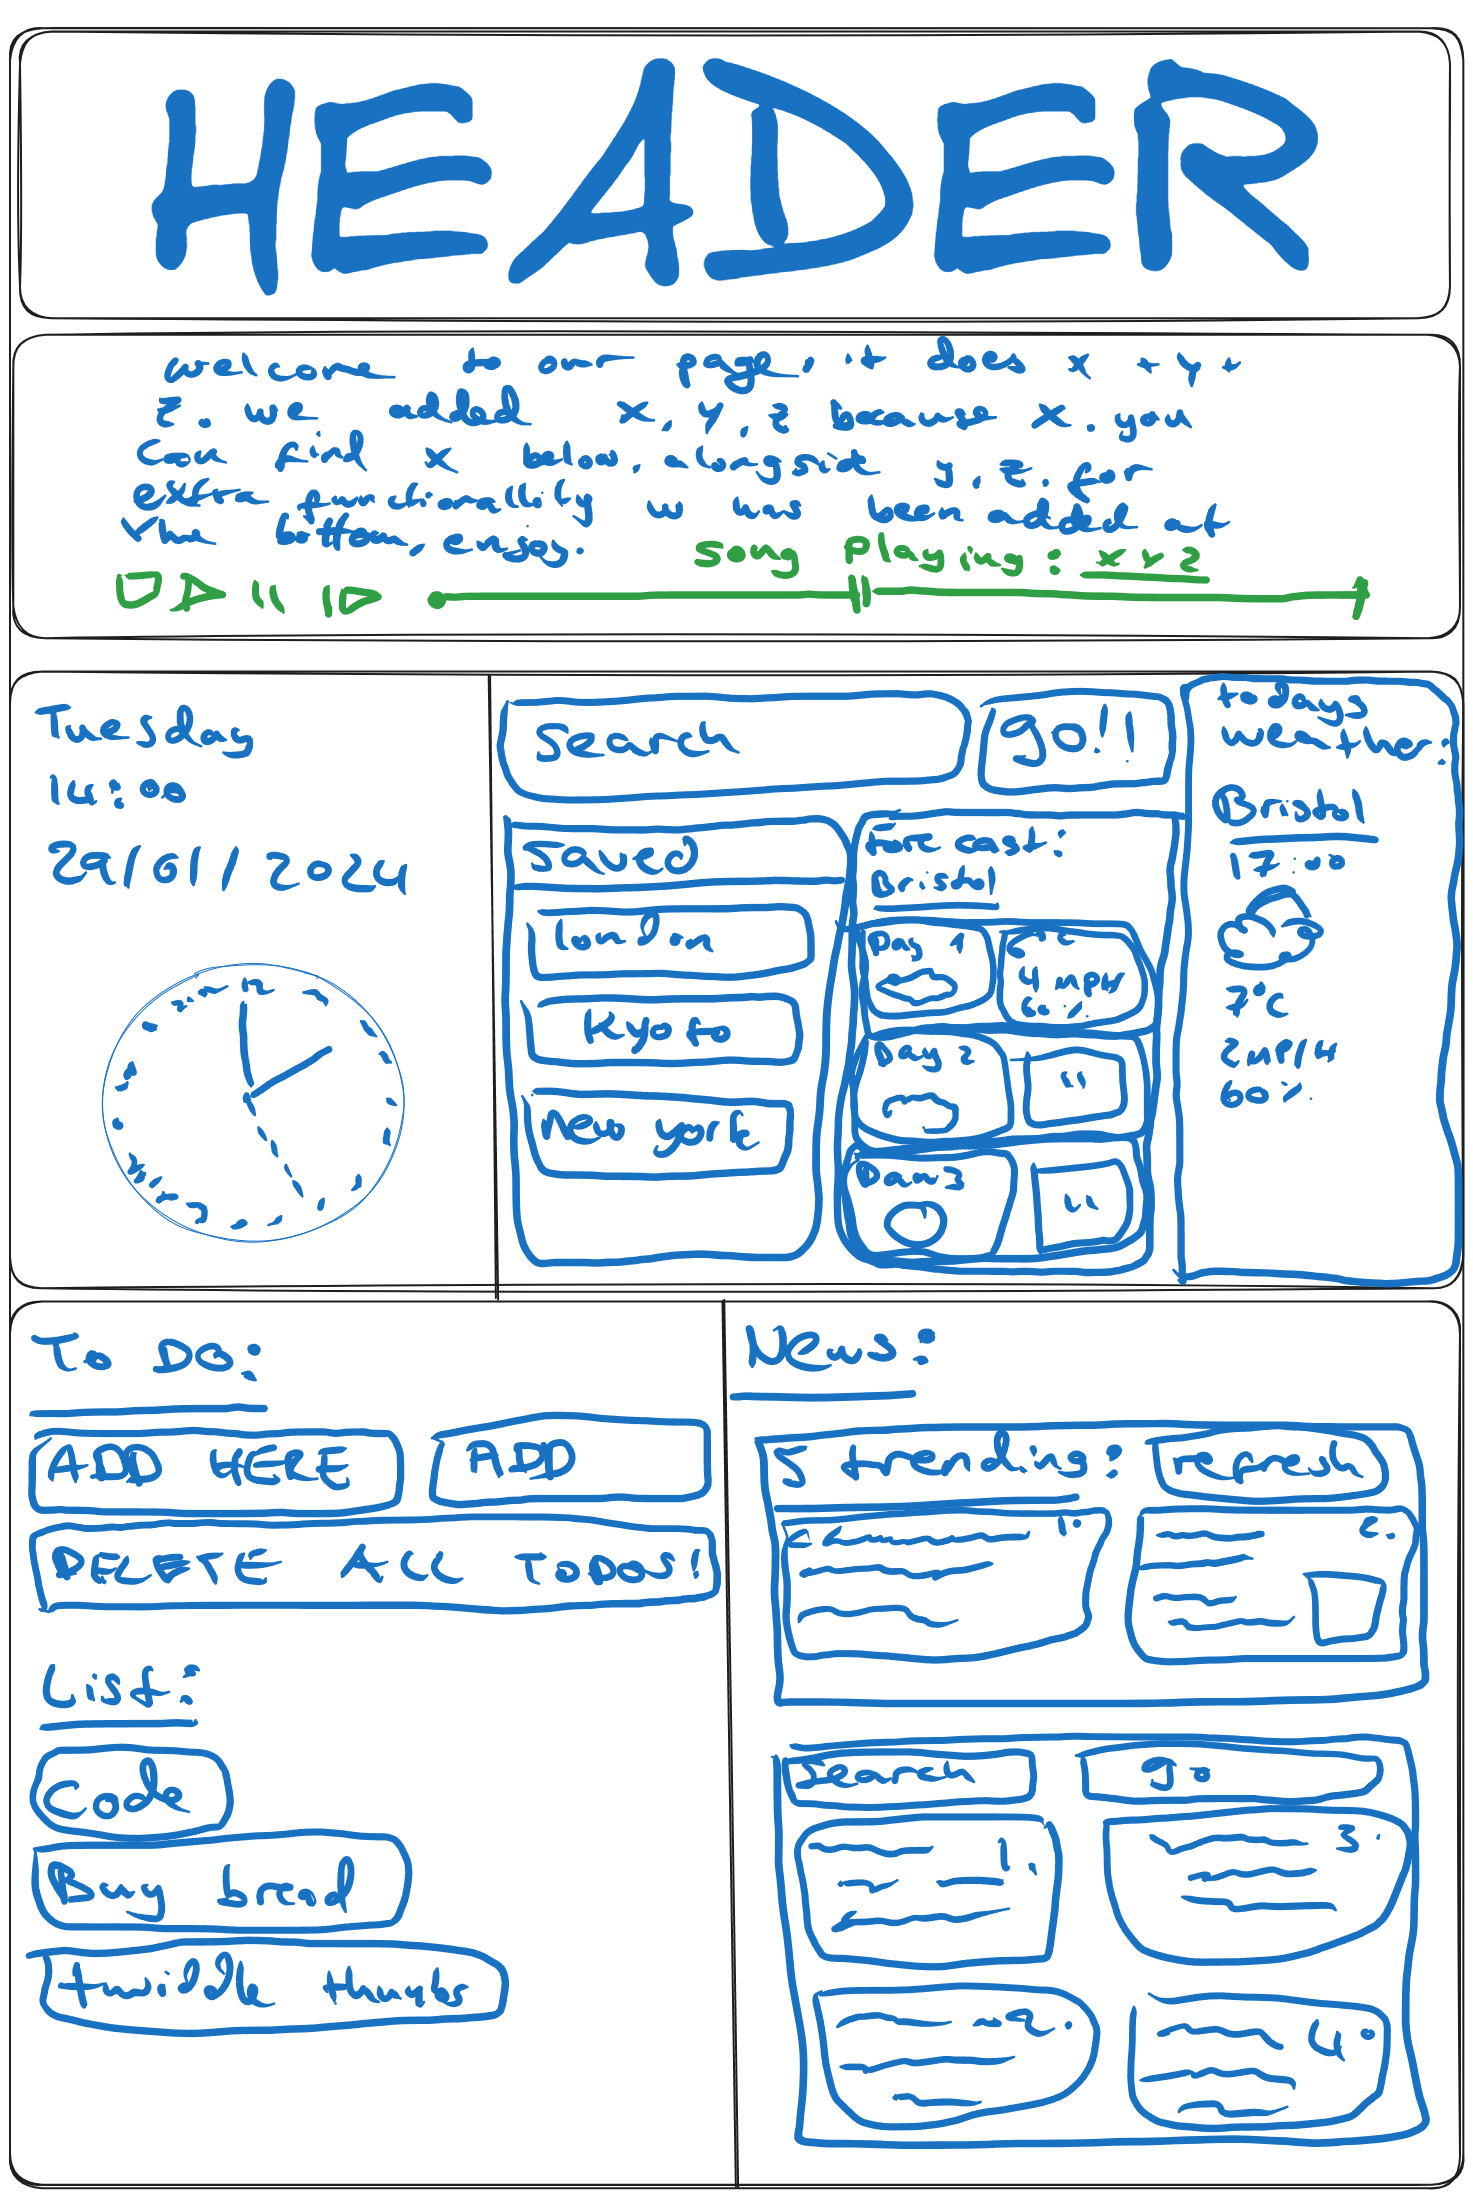 HEADER
welcome to our page, it does x + y +
z. we added x, y, z because x. you
can find x below, alongside y, z. for
extra functionallity w has been added at
the bottom, enjoy.
song playing: x y z
Tuesday
14:00
29/01/2024
12
Search
go!!
Saved
london
Kyoto
New york
Forecast:
Bristol
Day 1
6°C
4 MPH
60%.
Day 2
"
Day 3
"
todays
weather:
Bristol
17:00
7°C
2MPH
60%.
To Do:
ADD HERE
ADD
DELETE ALL TODOS!
List:
Code
Buy bread
twiddle thumbs
News:
5 trending:
refresh
1.
2.
Search
go
1.
3.
2.
4.